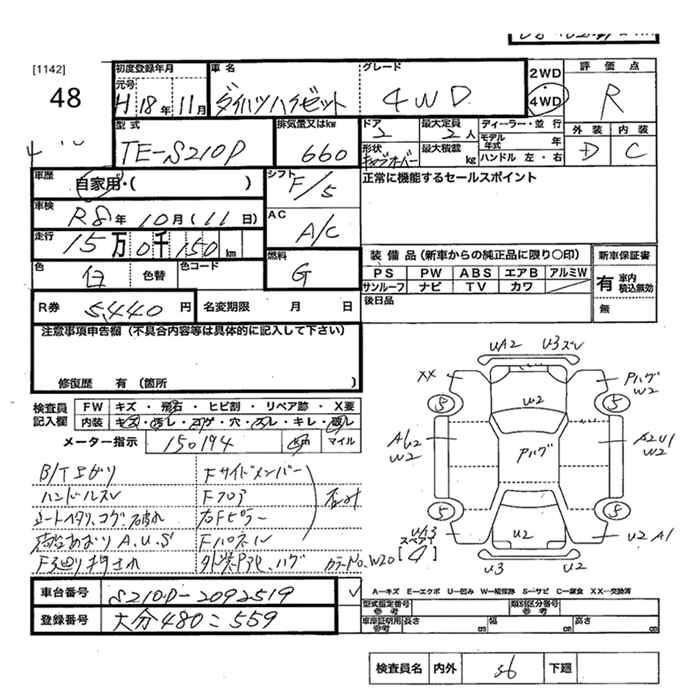 [1142]
48
初度登録年月
元号
H 18年 11月
車名
ダイハツハイゼット
グレード
4WD
2WD
4WD
評価点
R
外装 内装
D C
型式
TE-S210P
排気量又はkw
660
ドア
2
最大定員
2人
ディーラー・並行
モデル年式 年
ハンドル 左・右
形状
最大積載 kg
車歴
自家用・( )
シフト
F/5
正常に機能するセールスポイント
車検
R8年 10月 (11日)
AC
A/C
走行
15万0千150km
燃料
G
色
白
色替
色コード
装備品(新車からの純正品に限り○印)
新車保証書
PS PW ABS エアB アルミW
サンルーフ ナビ TV カワ
有 車内積込無効
無
後日品
R券
5,440円
名変期限 月 日
注意事項申告欄(不具合内容等は具体的に記入して下さい)
修復歴 有(箇所 )
検査員記入欄
FW キズ・飛石・ヒビ割・リペア跡・X要
内装 キズ・汚レ・コゲ・穴・スレ・キレ・破レ
メーター指示
150194
km マイル
ハンドルスレ
Fサイドメンバー
Fフロア
右Fピラー
Fパネル
UA2 U3ズレ
XX
U2
Pハゲ
W2
5 5
AU2
W2
Pハゲ
A2U1
W2
5 5
UA3
スペア
[4]
U2
U2 A1
U3 U2
W20
車台番号
S210P-2092519
登録番号
大分480こ559
A―キズ E―エクボ U―凹み W―補修跡 S―サビ C―腐食 XX―交換済
型式指定番号
参考
類別区分番号
参考
車庫証明用
参考
長さ cm 幅 cm 高さ cm
検査員名 内外 56 下廻